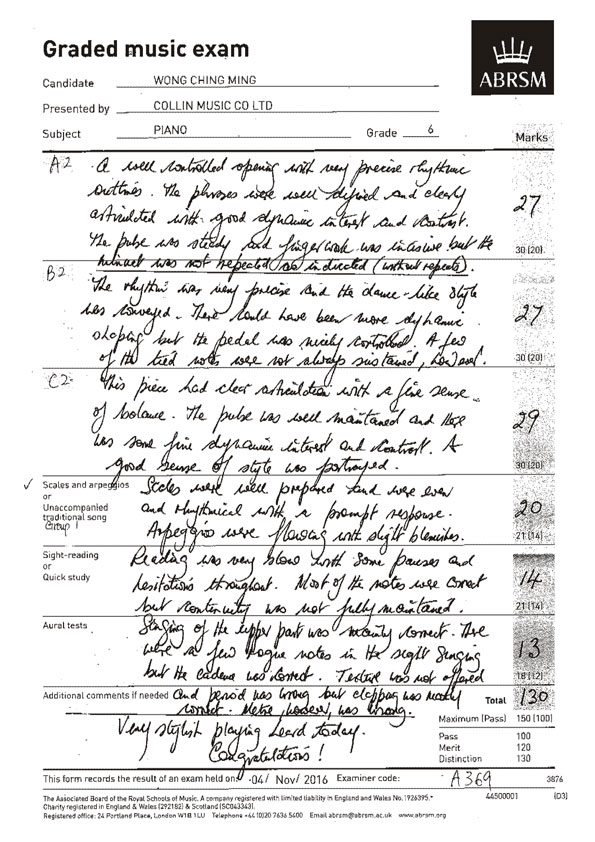 Graded music exam
ABRSM
Candidate WONG CHING MING
Presented by COLLIN MUSIC CO LTD
Subject PIANO Grade 6 Marks
A2 A well controlled opening with very precise rhythmic
outlines. The phrases were well defined and clearly
articulated with good dynamic interest and contrast. 27
The pulse was steady and fingerwork was incisive but the 30 (20)
minuet was not repeated as indicated (without repeats).
B2 The rhythm was very precise and the dance-like style
was conveyed. There could have been more dynamic 27
shaping but the pedal was nicely controlled. A few
of the tied notes were not always sustained, however. 30 (20)
C2 This piece had clear articulation with a fine sense
of balance. The pulse was well maintained and there 29
was some fine dynamic interest and contrast. A
good sense of style was portrayed. 30 (20)
✓ Scales and arpeggios Scales were well prepared and were even
or
Unaccompanied and rhythmical with a prompt response. 20
traditional song
Group 1 Arpeggios were flowing with slight blemishes. 21 (14)
Sight-reading Reading was very slow with some pauses and
or hesitations throughout. Most of the notes were correct 14
Quick study but continuity was not fully maintained. 21 (14)
Aural tests Singing of the upper part was mainly correct. There
were a few vague notes in the sight singing 13
but the cadence was correct. Texture was not offered 18 (12)
Additional comments if needed and period was wrong but clapping was mainly Total 130
correct. Metre, however, was wrong.
Maximum (Pass) 150 (100)
Very stylish playing heard today. Pass 100
Congratulations! Merit 120
Distinction 130
This form records the result of an exam held on 04/ Nov/ 2016 Examiner code: A369 3876
The Associated Board of the Royal Schools of Music. A company registered with limited liability in England and Wales No. 1926395. 44500001 (03)
Charity registered in England & Wales (292182) & Scotland (SC043343).
Registered office: 24 Portland Place, London W1B 1LU Telephone +44 (0)20 7636 5400 Email abrsm@abrsm.ac.uk www.abrsm.org